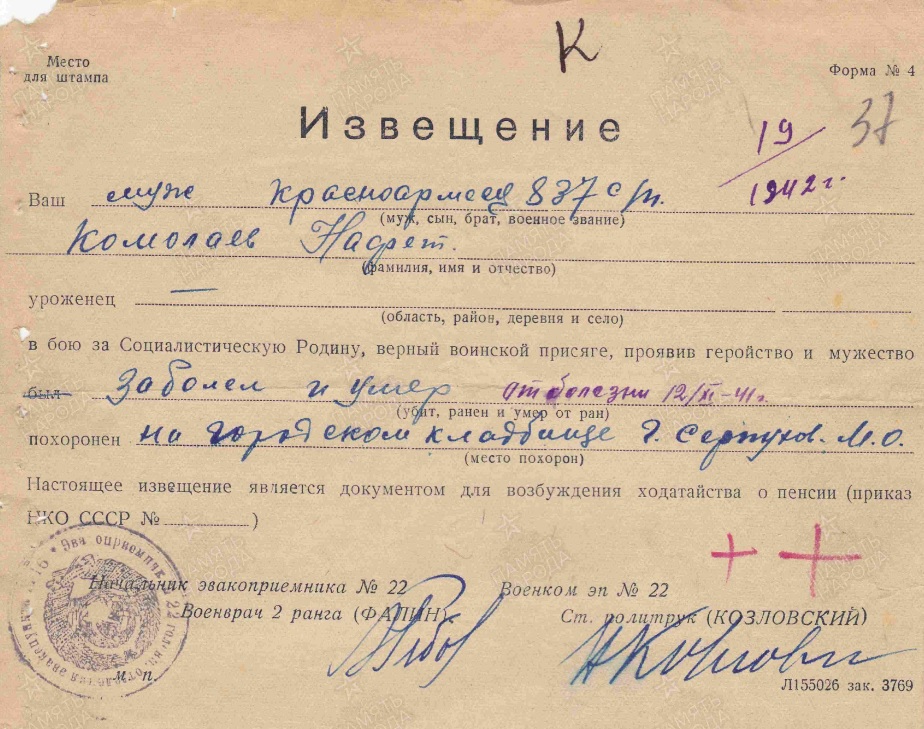 К
Место
для штампа
Форма № 4
37
Извещение
19/1942 г.
Ваш муж красноармеец 837 с/п.
(муж, сын, брат, военное звание)
Комолаев
(фамилия, имя и отчество)
уроженец —
(область, район, деревня и село)
в бою за Социалистическую Родину, верный воинской присяге, проявив геройство и мужество
был заболел и умер от болезни 12/XI-41г.
(убит, ранен и умер от ран)
похоронен на городском кладбище г. Серпухов. М.О.
(место похорон)
Настоящее извещение является документом для возбуждения ходатайства о пенсии (приказ
НКО СССР № )
Начальник эвакоприемника № 22
Военврач 2 ранга (ФАЛИН)
Военком эп № 22
Ст. политрук (КОЗЛОВСКИЙ)
м. п.
Л155026 зак. 3769
ПАМЯТЬ
НАРОДА